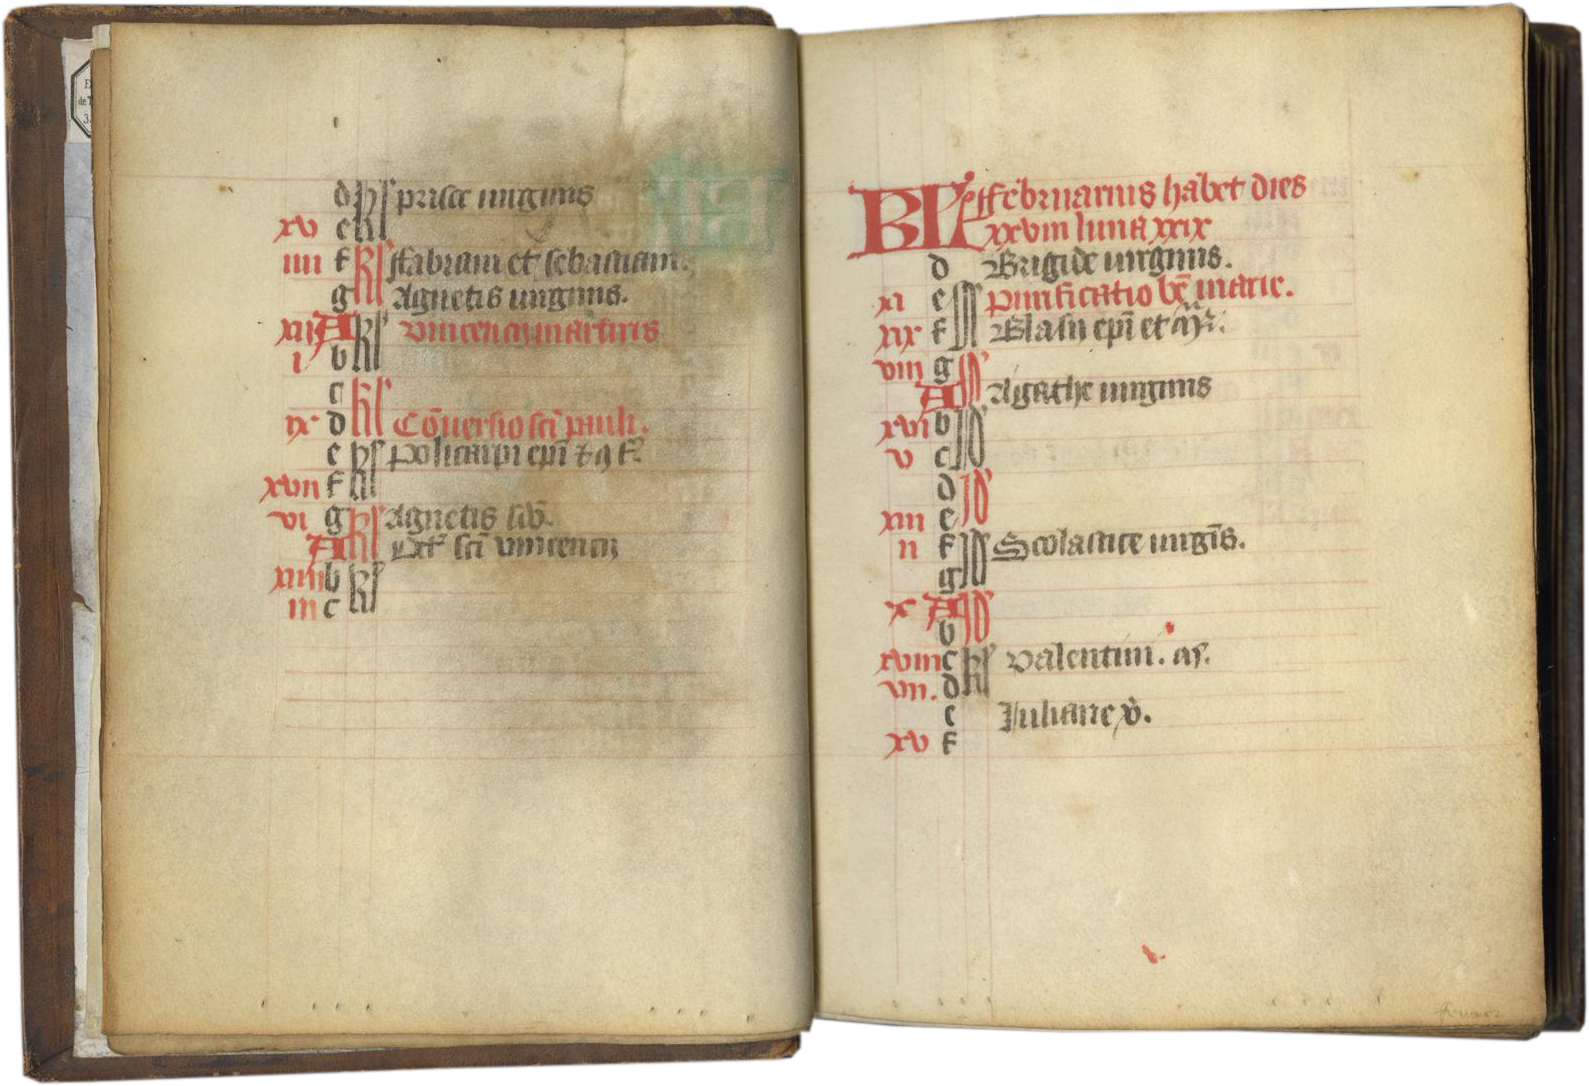 d kl prisce uirginis
xv e kl
iiii f kl ffabiani et sebastiani.
g kl Agnetis uirginis.
xii A kl vincencij martiris
i b kl
c kl
ix d kl Cōuersio scī pauli.
e kl policarpi ep̄i
xvii f kl
vi g kl Agnetis
A kl scī vincencij
xiiii b kl
iii c kl
KL ffebruarius habet dies
xxviii luna xxix
d Brigide uirginis.
xi e purificatio bē marie.
xix f Blasii ep̄i et
viii g
A Agathe uirginis
xvi b id
v c id
d id
xiii e id
ii f id Scolastice uirgīs.
g id
x A id
b id
xviii c kl valentini.
vii. d kl
e Iuliane v̄.
xv f